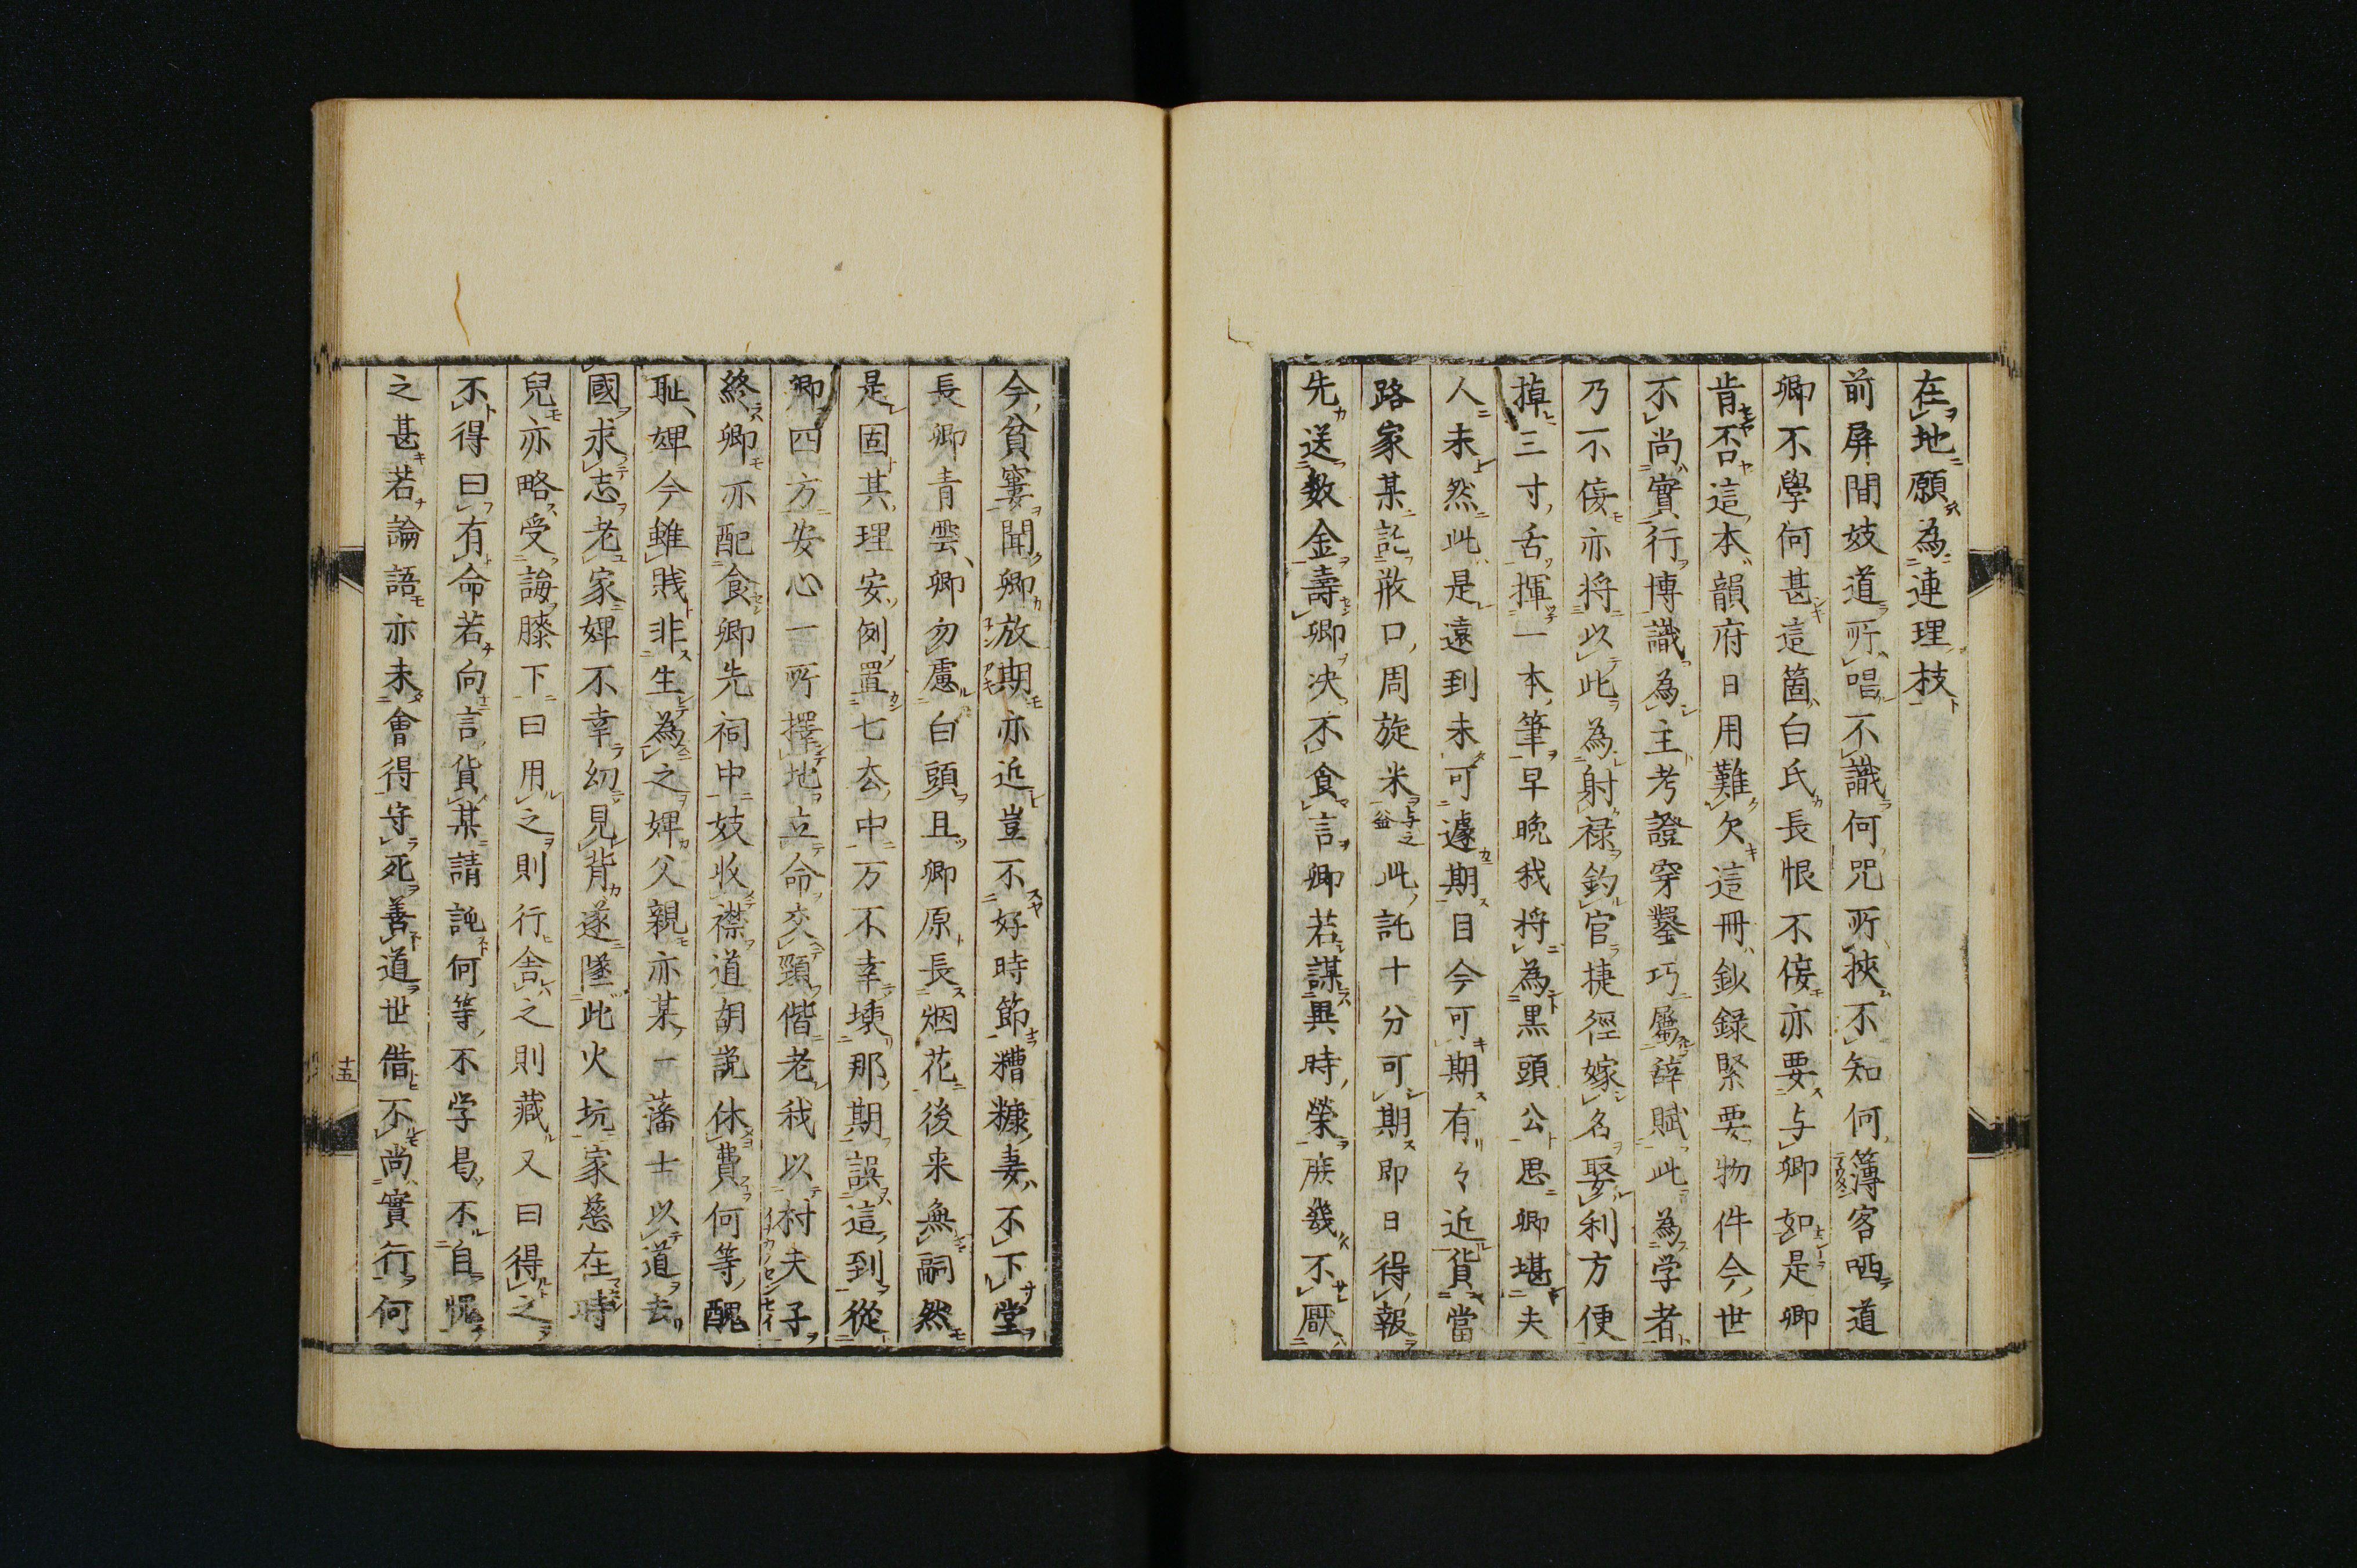 在地願為連理枝
前屏間妓道所唱不識何咒所挾不知何簿客哂道
卿不學何甚這箇白氏長恨不佞亦要与卿如是卿
肯否這本韻府日用難欠這冊鈔録緊要物件今世
不尚實行博識為主考證穿鑿巧属辞賦此為学者
乃不佞亦将以此為射禄釣官捷徑嫁名娶利方便
掉三寸舌揮一本筆早晩我将為黒頭公思卿堪夫
人未然此是遠到未可遽期目今可期有々近貨當
路家某託敝口周旋米与之釜此託十分可期即日得報
先送数金壽卿决不食言卿若謀異時榮族幾不厭
今貧窶聞卿放期亦近豈不好時節糟糠妻不下堂
長卿青雲卿勿慮白頭且卿原長烟花後来無嗣然
是固其理安例置七去中万不幸壊那期誤這到從
卿四方安心一所擇地立命交頸偕老我以村夫子
終卿亦配食卿先祠中妓收襟道胡説休費何等醜
耻婢今雖賎非生為之婢父親亦某一藩士以道去
國求志老家婢不幸幼見背遂墜此火坑家慈在時
兒亦略受誨膝下曰用之則行舎之則藏又曰得之
不得曰有命若向言貨某請託何等不学曷不自愧
之甚若論語亦未會得守死善道世借不尚實行何
十五